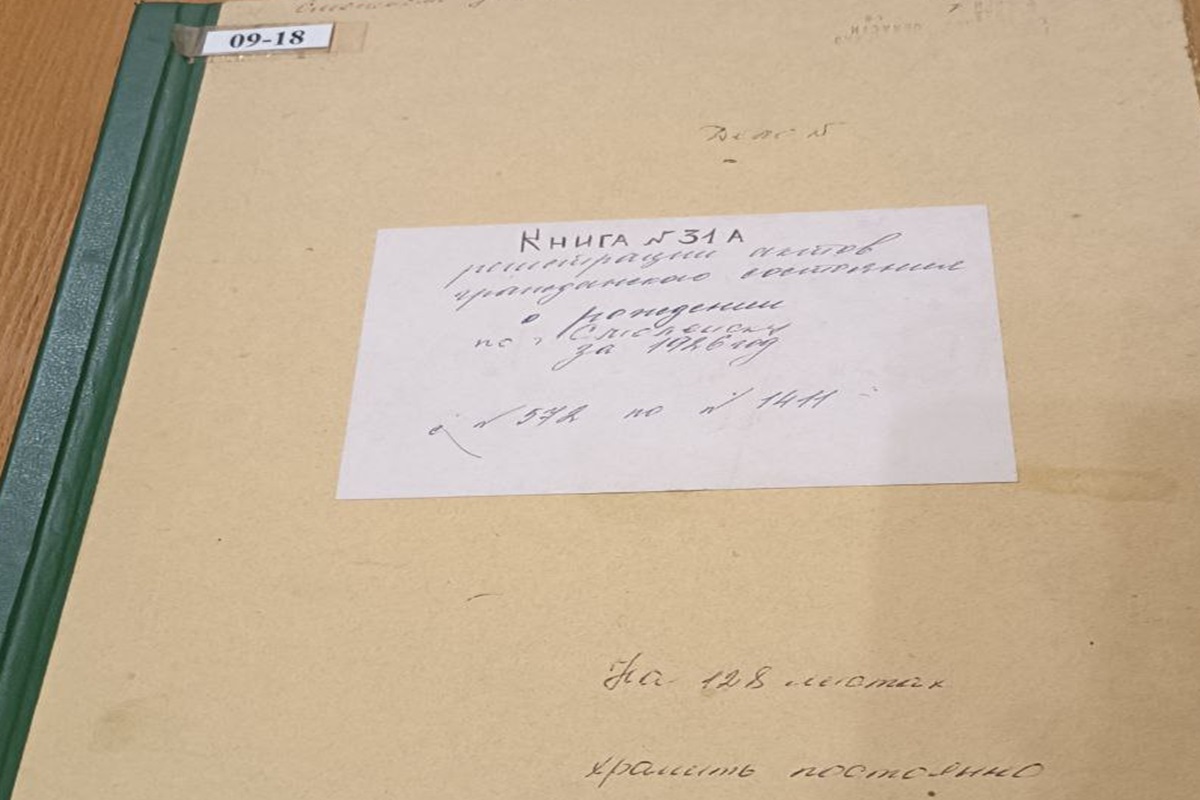 09-18
Дело №
Книга №31А
регистрации актов
гражданского состояния
о рождении
по г. Смоленску
за 1926 год
с №572 по №1411
На 128 листах
хранить постоянно